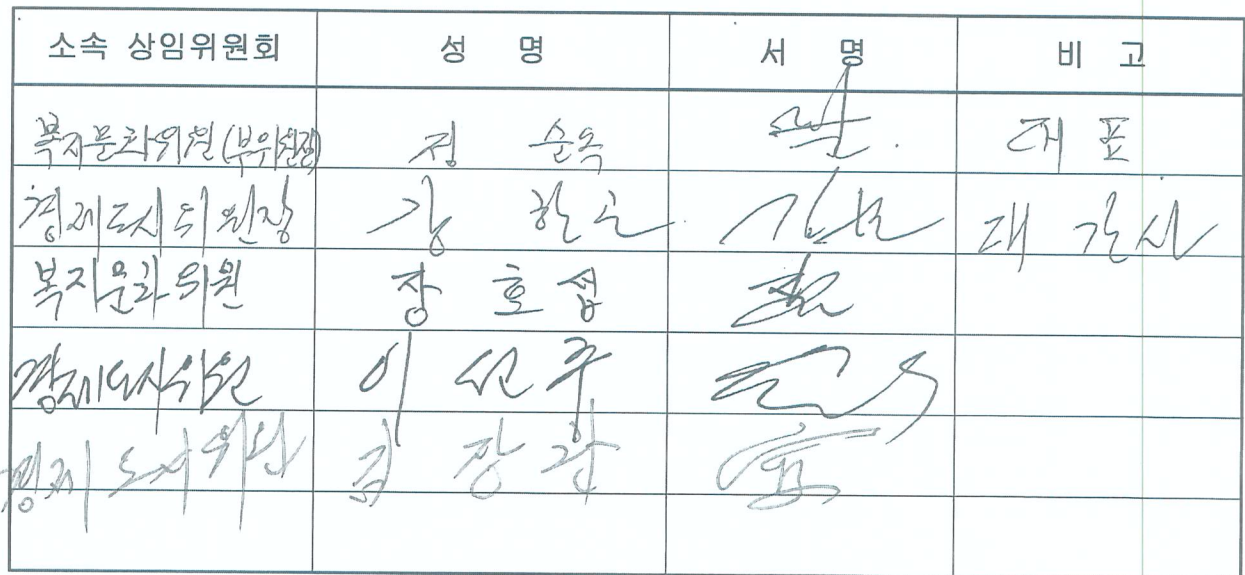 소속 상임위원회 성 명 서 명 비 고
복지문화위원(부위원장) 정 순옥 대표
경제도시위원장 강 한 대 간사
복지문화위원 장 호섭
경제도시위원 이 선주
경제도시위원 김 장관